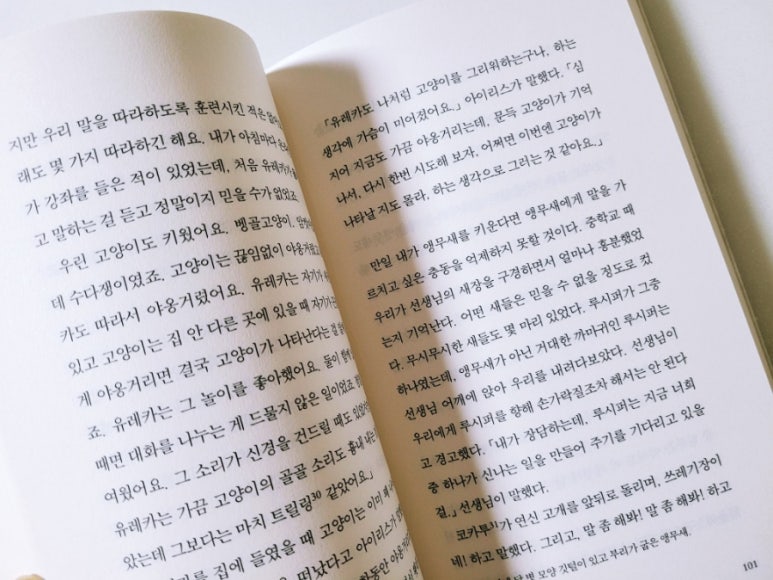 지만 우리 말을 따라하도록 훈련시킨 적은
래도 몇 가지 따라하긴 해요. 내가 아침마다
가 강좌를 들은 적이 있었는데, 처음 유레카가
고 말하는 걸 듣고 정말이지 믿을 수가 없었죠.
우린 고양이도 키웠어요. 벵골고양이.
데 수다쟁이였죠. 고양이는 끊임없이 야옹거렸고
카도 따라서 야옹거렸어요. 유레카는 자기가
있고 고양이는 집 안 다른 곳에 있을 때 자기가
게 야옹거리면 결국 고양이가 나타난다는 걸
죠. 유레카는 그 놀이를 좋아했어요. 둘이
때면 대화를 나누는 게 드물지 않은 일이었죠
여웠어요. 그 소리가 신경을 건드릴 때도
유레카는 가끔 고양이의 골골 소리도 흉내
았는데 그보다는 마치 트릴링30 같았어요.」
를 집에 들였을 때 고양이는 이미
떠났다고 아이리스가
동안 야옹
「유레카도 나처럼 고양이를 그리워하는구나, 하는
생각에 가슴이 미어졌어요.」 아이리스가 말했다. 「심
지어 지금도 가끔 야옹거리는데, 문득 고양이가 기억
나서, 다시 한번 시도해 보자, 어쩌면 이번엔 고양이가
나타날 지도 몰라, 하는 생각으로 그러는 것 같아요.」
만일 내가 앵무새를 키운다면 앵무새에게 말을 가
르치고 싶은 충동을 억제하지 못할 것이다. 중학교 때
우리가 선생님의 새장을 구경하면서 얼마나 흥분했었
는지 기억난다. 어떤 새들은 믿을 수 없을 정도로 컸
다. 무시무시한 새들도 몇 마리 있었다. 루시퍼가 그중
하나였는데, 앵무새가 아닌 거대한 까마귀인 루시퍼는
선생님 어깨에 앉아 우리를 내려다보았다. 선생님이
우리에게 루시퍼를 향해 손가락질조차 해서는 안 된다
고 경고했다. 「내가 장담하는데, 루시퍼는 지금 너희
중 하나가 신나는 일을 만들어 주기를 기다리고 있을
걸.」 선생님이 말했다.
코카투31가 연신 고개를 앞뒤로 돌리며, 쓰레기장이
네! 하고 말했다. 그리고, 말 좀 해봐! 말 좀 해봐! 하고
모양 깃털이 있고 부리가 굽은 앵무새.
101